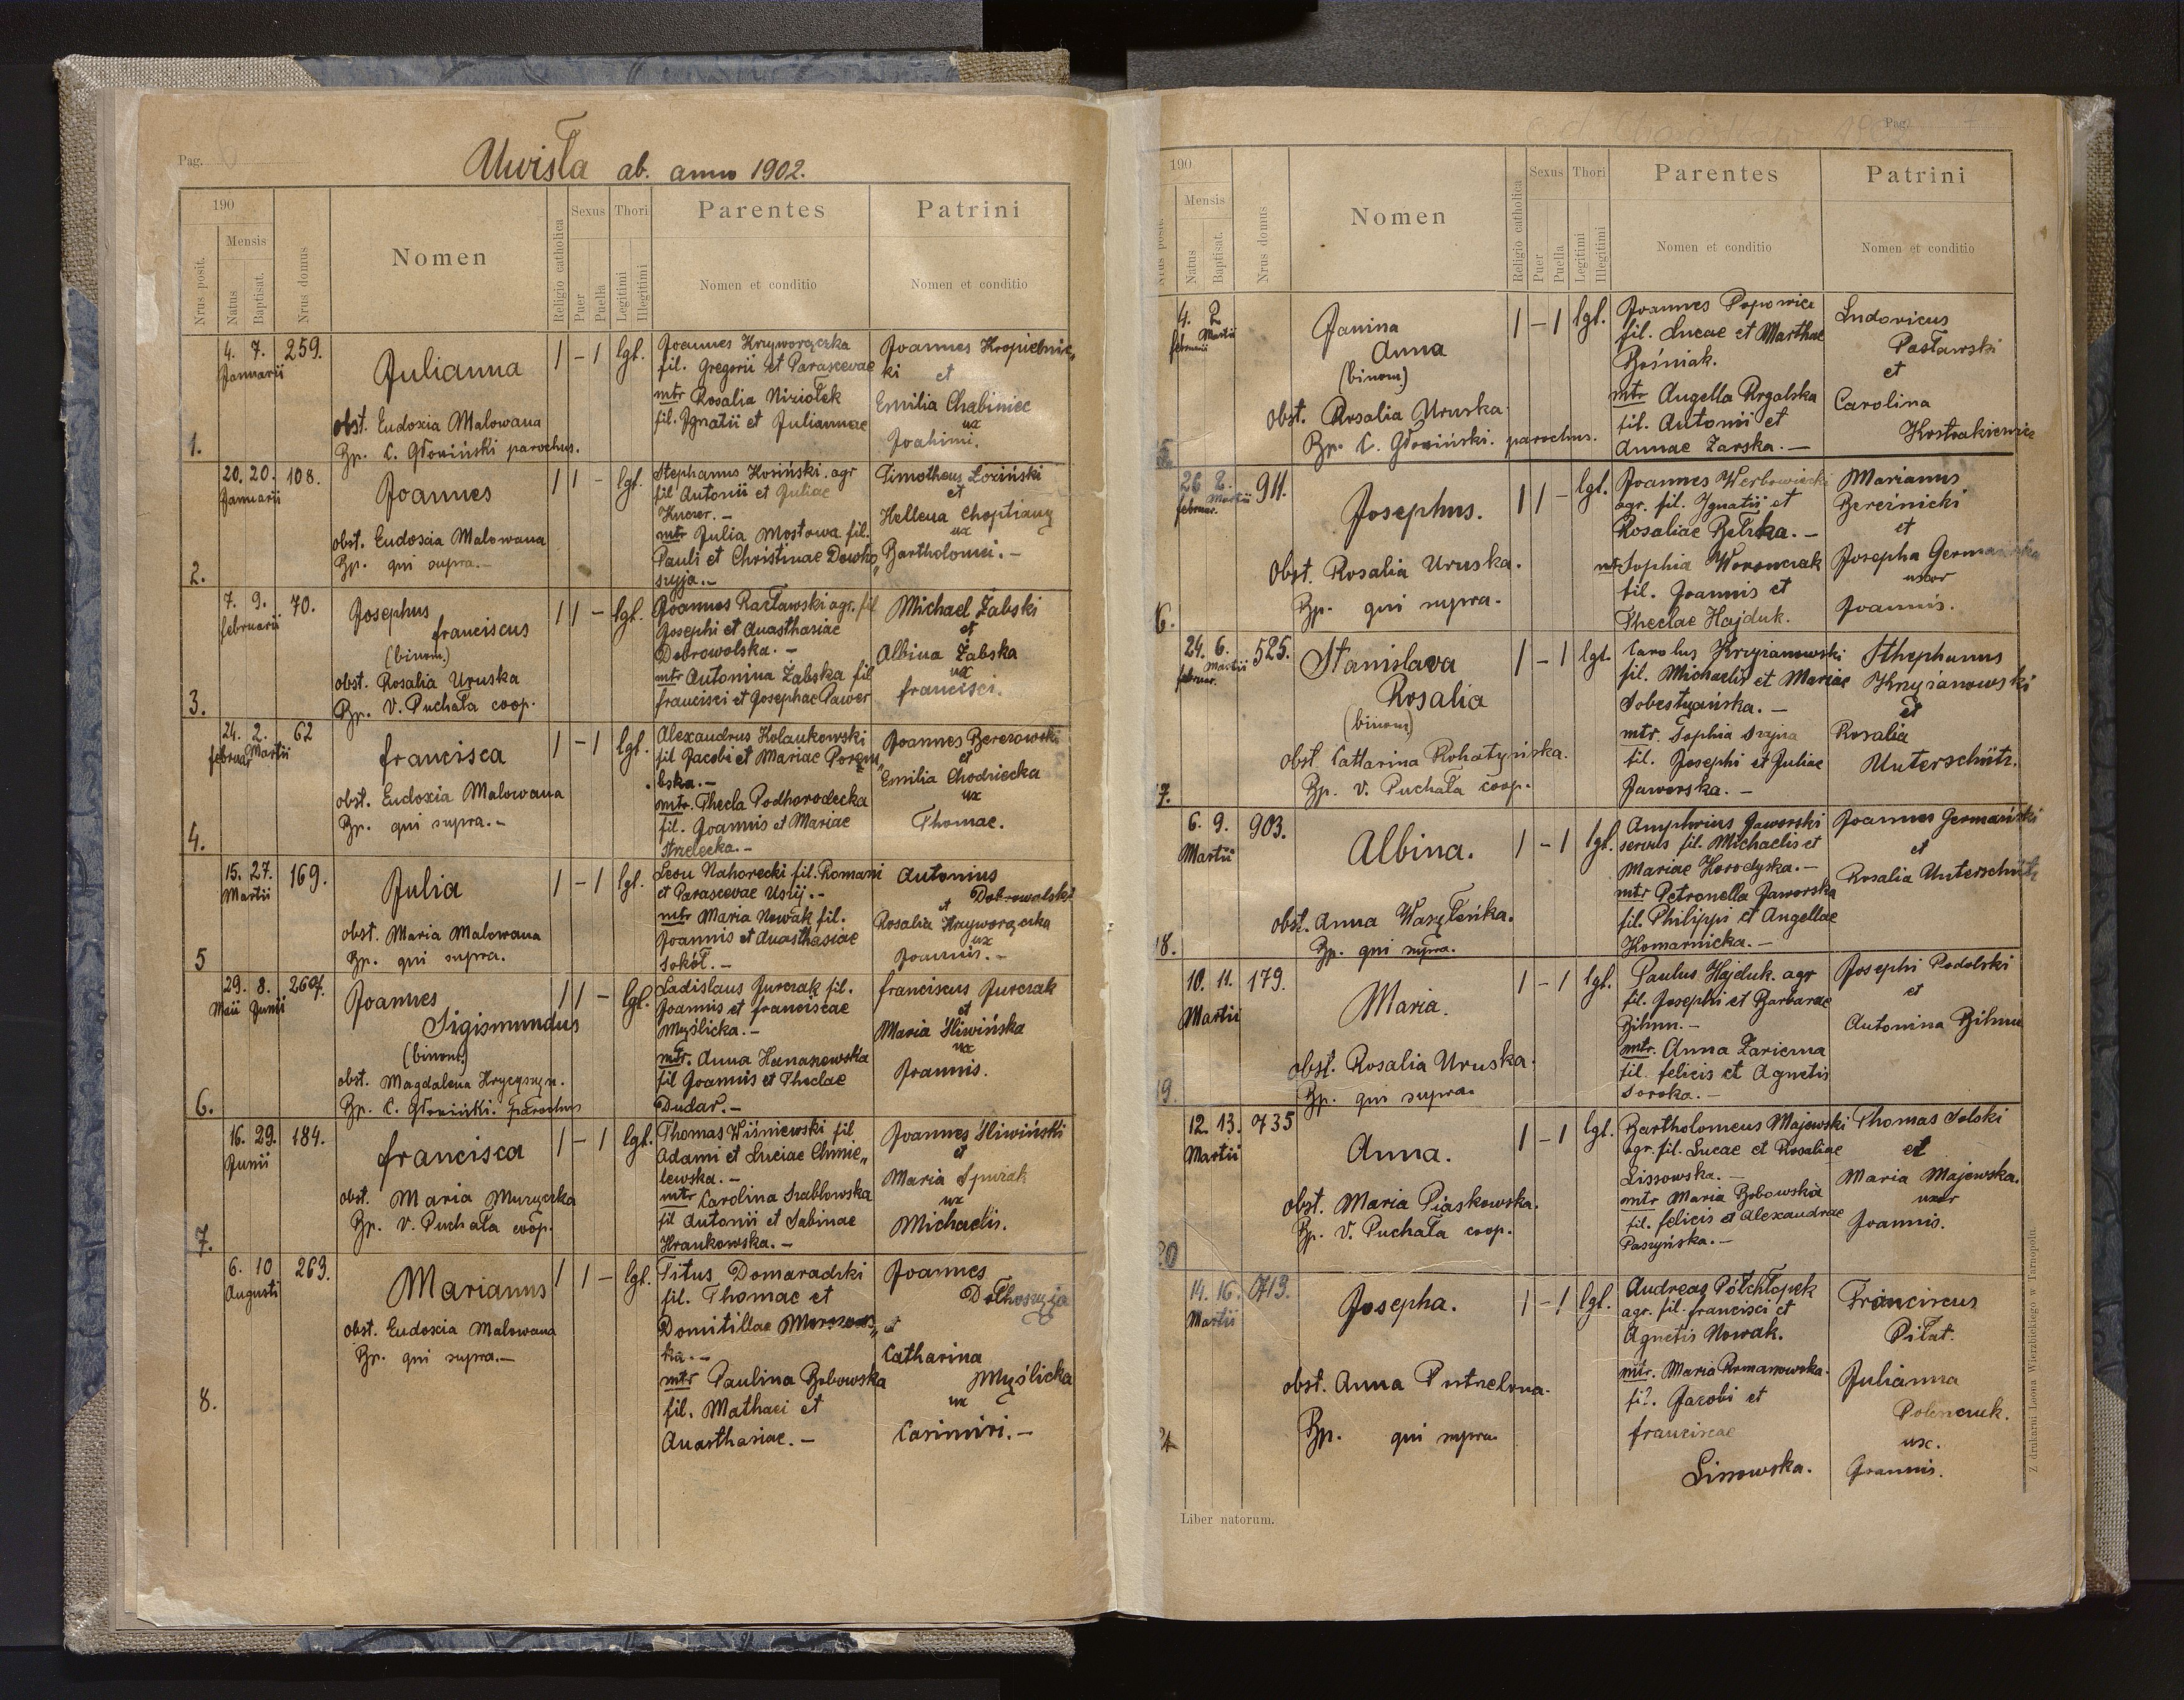 Pag. 6
Uwisła ab. anno 1902.
190
Mensis
Nrus posit.
Natus
Baptisat.
Nrus domus
Nomen
Religio catholica
Sexus
Puer
Puella
Thori
Legitimi
Illegitimi
Parentes
Nomen et conditio
Patrini
Nomen et conditio
1.
4. 7.
Januarii
259.
Julianna
obst. Eudoxia Malowana
Bp. C. Głowiński parochus.
1 – 1 lgl.
Joannes Krzyworączka
fil. Gregorii et Parascevae
mtr Rosalia Niziołek
fil. Ignatii et Juliannae
Joannes Kropielnic„
ki et
Emilia Chabiniec
ux
Joahimi.
2.
20. 20.
Januarii
108.
Joannes
obst. Eudoxia Malowana
Bp. qui supra.-
1 1 – lgl.
Stephanus Kosiński. agr
fil Antonii et Juliae
Kuczer.-
mtr Julia Mostowa fil.
Pauli et Christinae Dowho„
szyja.-
Timotheus Loziński
et
Hellena Choptiany
ux
Bartholomei.-
3.
7. 9.
februarii
70.
Josephus
franciscus
(binom.)
obst. Rosalia Uruska
Bp. V. Puchała coop.
1 1 – lgl.
Joannes Racławski agr. fil
Josephi et Anasthasiae
Dobrowolska.-
mtr Antonina Żabska fil
francisci et Josephae Pawer
Michael Żabski
et
Albina Żabska
ux
francisci.
4.
24. 2.
februar Martii
62
francisca
obst. Eudoxia Malowana
Bp. qui supra.-
1 – 1 lgl.
Alexandrus Kolankowski
fil Jacobi et Mariae Porem„
bska.-
mtr. Thecla Podhorodecka
fil. Joannis et Mariae
Strzelecka.-
Joannes Berezowski
et
Emilia Chodniecka
ux
Thomae.
5
15. 27.
Martii
169.
Julia
obst. Maria Malowana
Bp. qui supra.
1 – 1 lgl.
Leon Nahorecki fil. Romani
et Parascevae Usij.-
mtr Maria Nowak fil.
Joannis et Anasthasiae
Sokół.-
Antonius
Dobrowolski
et
Rosalia Krzyworączka
ux
Joannis.-
6.
29. 8.
Maii Junii
Joannes
Sigismundus
(binom)
obst. Magdalena Hrycyszyn.
Bp. C. Głowiński. parochus
1 1 – lgl.
Ladislaus Jurczak fil.
Joannis et franciscae
Myślicka.-
mtr. Anna Hanaszewska
fil Joannis et Theclae
Dudar.-
franciscus Jurczak
et
Maria Śliwińska
ux
Joannis.
7.
16. 29.
Junii
184.
francisca
obst. Maria Muryszka
Bp. V. Puchała coop.
1 – 1 lgl.
Thomas Wiśniewski fil
Adami et Luciae Chmie„
lewska.-
mtr Carolina Szablowska
fil Antonii et Sabinae
Krankowska.-
Joannes Śliwiński
et
Maria Spurzak
ux
Michaelis.
8.
6. 10
Augusti
263.
Marianus
obst. Eudoxia Malowana
Bp. qui supra.-
1 1 – lgl.
Titus Domaradzki
fil. Thomae et
Domitillae
ka.-
mtr Paulina Bobowska
fil. Mathaei et
Anasthasiae.-
Joannes
et
Catharina
Myślicka
ux
Casimiri.-
Pag.
190
Nrus posit.
Mensis
Natus
Baptisat.
Nrus domus
Nomen
Religio catholica
Sexus
Puer
Puella
Thori
Legitimi
Illegitimi
Parentes
Nomen et conditio
Patrini
Nomen et conditio
5.
4. 2
februarii Martii
Janina
Anna
(binom)
obst. Rosalia Uruska
Bp. C. Głowiński. parochus.
1 – 1 lgl.
Joannes Popowicz
fil. Lucae et Marthae
Bośniak.
mtr Angella Rogalska
fil. Antonii et
Annae Zarska.-
Ludovicus
Pasławski
et
Carolina
Kostrakiewicz
6.
26 2.
februar. Martii
911.
Josephus.
Obst. Rosalia Uruska.
Bp. qui supra.
1 1 – lgl.
Joannes Werbowiecki
agr. fil. Ignatii et
Rosaliae Belska.-
mt Sophia Woronczak
fil. Joannis et
Theclae Hajduk.
Marianus
Bereźnicki
et
Josepha Germańska
uxor
Joannis.
7.
24. 6.
februar. Martii
525.
Stanislava
Rosalia
(binom)
obst. Cattarina Rohatyńska.
Bp. V. Puchała coop.
1 – 1 lgl.
Carolus Krzyżanowski
fil. Michaelis et Mariae
Sobestyańska.-
mtr. Sophia Szajna
fil. Josephi et Juliae
Jaworska.-
Sthephanus
Krzyżanowski
et
Rosalia
Unterschütz.
18.
6. 9.
Martii
903.
Albina.
obst. Anna Waszyłeńka.
Bp. qui supra.
1 – 1 lgl.
Amphrius Jaworski
servus fil. Michaelis et
Mariae Horodyska.-
mtr Petronella Jaworska
fil. Philippi et Angellae
Komarnicka.-
Joannes Germański
et
Rosalia Unterschütz
19.
10. 11.
Martii
179.
Maria.
obst. Rosalia Uruska.
Bp. qui supra.
1 – 1 lgl.
Paulus Hajduk. agr
fil. Josephi et Barbarae
Bihun.-
mtr. Anna Zariczna
fil. felicis et Agnetis
Soroka.-
Josephi Podolski
et
Antonina Bihun
20
12. 13.
Martii
735
Anna.
obst. Maria Piaskowska.
Bp. V. Puchała coop.
1 – 1 lgl.
Bartholomeus Majewski
agr. fil. Lucae et Rosaliae
Lissowska.-
mtr Maria Bobowska
fil. felicis et Alexandrae
Paszyńska.-
Thomas Solski
et
Maria Majewska.
uxor
Joannis.
21
14. 16.
Martii
713.
Josepha.
obst. Anna
Bp. qui supra
1 – 1 lgl.
Andreas Półchłopek
agr. fil. francisci et
Agnetis Nowak.
mtr. Maria Romanowska.
fil. Jacobi et
franciscae
Lissowska.
Franciscus
Piłat.
Julianna
Polenczuk.
ux.
Joannis.
Liber natorum.
Z drukarni Leona Wierzbickiego w Tarnopolu.